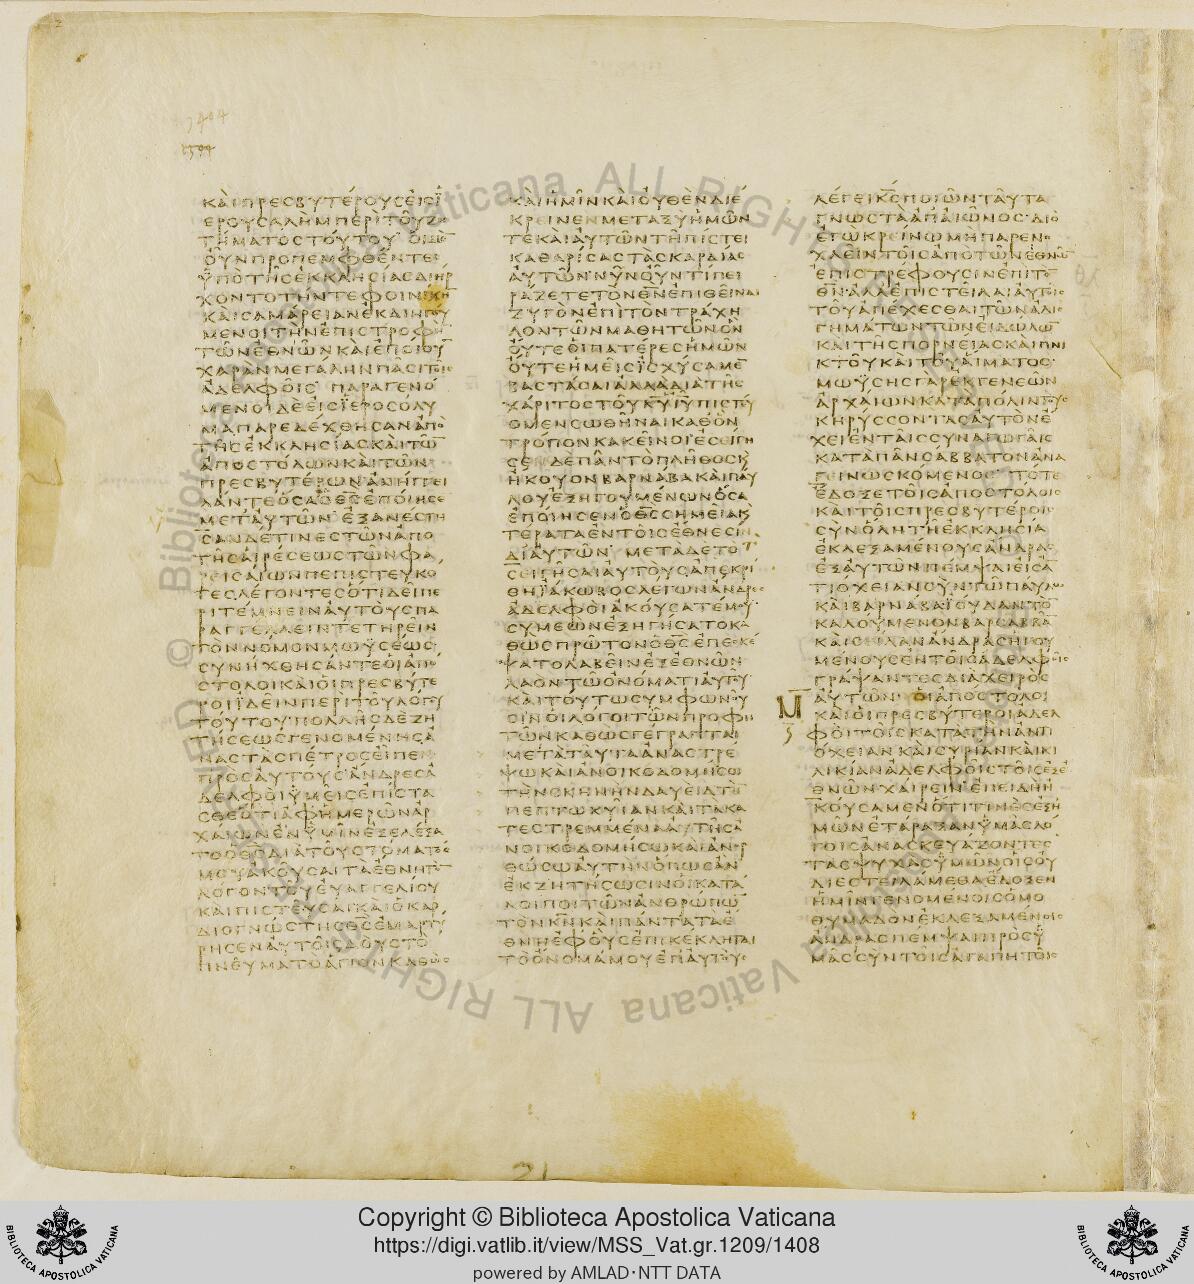 ΚΑΙΠΡΕСΒΥΤΕΡΟΥСΕΙСΙ
ΕΡΟΥСΑΛΗΜΠΕΡΙΤΟΥΖΗ
ΤΗΜΑΤΟСΤΟΥΤΟΥ ΟΙΜΕ
ΟΥΝΠΡΟΠΕΜΦΘΕΝΤΕС
ΥΠΟΤΗСΕΚΚΛΗСΙΑСΔΙΗΡ
ΧΟΝΤΟΤΗΝΤΕΦΟΙΝΙΚΗ
ΚΑΙСΑΜΑΡΕΙΑΝΕΚΔΙΗΓΟΥ
ΜΕΝΟΙΤΗΝΕΠΙСΤΡΟΦΗ
ΤΩΝΕΘΝΩΝΚΑΙΕΠΟΙΟΥ
ΧΑΡΑΝΜΕΓΑΛΗΝΠΑСΙΤΟΙС
ΑΔΕΛΦΟΙС ΠΑΡΑΓΕΝΟ
ΜΕΝΟΙΔΕΕΙСΙΕΡΟСΟΛΥ
ΜΑΠΑΡΕΔΕΧΘΗСΑΝΑΠΟ
ΤΗСΕΚΚΛΗСΙΑСΚΑΙΤΩ
ΑΠΟСΤΟΛΩΝΚΑΙΤΩΝ
ΠΡΕСΒΥΤΕΡΩΝΑΝΗΓΓΕΙ
ΛΑΝΤΕΟСΑΟΘСΕΠΟΙΗСΕ
ΜΕΤΑΥΤΩΝ ΕΞΑΝΕСΤΗ
СΑΝΔΕΤΙΝΕСΤΩΝΑΠΟ
ΤΗСΑΙΡΕСΕΩСΤΩΝΦΑ
ΡΕΙСΑΙΩΝΠΕΠΙСΤΕΥΚΟ
ΤΕСΛΕΓΟΝΤΕСΟΤΙΔΕΙΠΕ
ΡΙΤΕΜΝΕΙΝΑΥΤΟΥСΠΑ
ΡΑΓΓΕΛΛΕΙΝΤΕΤΗΡΕΙΝ
ΤΟΝΝΟΜΟΝΜΩΥСΕΩС
СΥΝΗΧΘΗСΑΝΤΕΟΙΑΠΟ
СΤΟΛΟΙΚΑΙΟΙΠΡΕСΒΥΤΕ
ΡΟΙΙΔΕΙΝΠΕΡΙΤΟΥΛΟΓΟΥ
ΤΟΥΤΟΥΠΟΛΛΗСΔΕΖΗ
ΤΗСΕΩСΓΕΝΟΜΕΝΗСΑ
ΝΑСΤΑСΠΕΤΡΟСΕΙΠΕΝ
ΠΡΟСΑΥΤΟΥСΑΝΔΡΕСΑ
ΔΕΛΦΟΙΥΜΕΙСΕΠΙСΤΑ
СΘΕΟΤΙΑΦΗΜΕΡΩΝΑΡ
ΧΑΙΩΝΕΝΥΜΙΝΕΞΕΛΕΞΑ
ΤΟΟΘСΔΙΑΤΟΥСΤΟΜΑΤΟС
ΜΟΥΑΚΟΥСΑΙΤΑΕΘΝΗΤΟ
ΛΟΓΟΝΤΟΥΕΥΑΓΓΕΛΙΟΥ
ΚΑΙΠΙСΤΕΥСΑΙΚΑΙΟΚΑΡ
ΔΙΟΓΝΩСΤΗСΘСΕΜΑΡΤΥ
ΡΗСΕΝΑΥΤΟΙСΔΟΥСΤΟ
ΠΝΕΥΜΑΤΟΑΓΙΟΝΚΑΘΩС
ΚΑΙΗΜΙΝΚΑΙΟΥΘΕΝΔΙΕ
ΚΡΕΙΝΕΝΜΕΤΑΞΥΗΜΩΝ
ΤΕΚΑΙΑΥΤΩΝΤΗΠΙСΤΕΙ
ΚΑΘΑΡΙСΑСΤΑСΚΑΡΔΙΑС
ΑΥΤΩΝ ΝΥΝΟΥΝΤΙΠΕΙ
ΡΑΖΕΤΕΤΟΝΘΝΕΠΙΘΕΙΝΑΙ
ΖΥΓΟΝΕΠΙΤΟΝΤΡΑΧΗ
ΛΟΝΤΩΝΜΑΘΗΤΩΝΟΝ
ΟΥΤΕΟΙΠΑΤΕΡΕСΗΜΩΝ
ΟΥΤΕΗΜΕΙСΙСΧΥСΑΜΕ
ΒΑСΤΑСΑΙΑΛΛΑΔΙΑΤΗС
ΧΑΡΙΤΟСΤΟΥΚΥΙΥΠΙСΤΕΥ
ΟΜΕΝСΩΘΗΝΑΙΚΑΘΟΝ
ΤΡΟΠΟΝΚΑΚΕΙΝΟΙ ΕСΕΙΓΗ
СΕΝΔΕΠΑΝΤΟΠΛΗΘΟСΚ
ΗΚΟΥΟΝΒΑΡΝΑΒΑΚΑΙΠΑΥ
ΛΟΥΕΞΗΓΟΥΜΕΝΩΝΟСΑ
ΕΠΟΙΗСΕΝΟΘССΗΜΕΙΑΚ
ΤΕΡΑΤΑΕΝΤΟΙСΕΘΝΕСΙΝ
ΔΙΑΥΤΩΝ ΜΕΤΑΔΕΤΟ
СΕΙΓΗСΑΙΑΥΤΟΥСΑΠΕΚΡΙ
ΘΗΙΑΚΩΒΟСΛΕΓΩΝΑΝΔΡΕС
ΑΔΕΛΦΟΙΑΚΟΥСΑΤΕΜΟΥ
СΥΜΕΩΝΕΞΗΓΗСΑΤΟΚΑ
ΘΩСΠΡΩΤΟΝΟΘСΕΠΕСΚΕ
ΨΑΤΟΛΑΒΕΙΝΕΞΕΘΝΩΝ
ΛΑΟΝΤΩΟΝΟΜΑΤΙΑΥΤΟΥ
ΚΑΙΤΟΥΤΩСΥΜΦΩΝΟΥ
СΙΝΟΙΛΟΓΟΙΤΩΝΠΡΟΦΗ
ΤΩΝΚΑΘΩСΓΕΓΡΑΠΤΑΙ
ΜΕΤΑΤΑΥΤΑΑΝΑСΤΡΕ
ΨΩΚΑΙΑΝΟΙΚΟΔΟΜΗСΩ
ΤΗΝСΚΗΝΗΝΔΑΥΕΙΔΤΗ
ΠΕΠΤΩΚΥΙΑΝΚΑΙΤΑΚΑ
ΤΕСΤΡΕΜΜΕΝΑΑΥΤΗСΑ
ΝΟΙΚΟΔΟΜΗСΩΚΑΙΑΝΟΡ
ΘΩСΩΑΥΤΗΝΟΠΩСΑΝ
ΕΚΖΗΤΗСΩСΙΝΟΙΚΑΤΑ
ΛΟΙΠΟΙΤΩΝΑΝΘΡΩΠΩ
ΤΟΝΚΝΚΑΙΠΑΝΤΑΤΑΕ
ΘΝΗΕΦΟΥСΕΠΙΚΕΚΛΗΤΑΙ
ΤΟΟΝΟΜΑΜΟΥΕΠΑΥΤΟΥС
ΛΕΓΕΙΚСΠΟΙΩΝΤΑΥΤΑ
ΓΝΩСΤΑΑΠΑΙΩΝΟС ΔΙΟ
ΕΓΩΚΡΕΙΝΩΜΗΠΑΡΕΝΟ
ΧΛΕΙΝΤΟΙСΑΠΟΤΩΝΕΘΝΩ
ΕΠΙСΤΡΕΦΟΥСΙΝΕΠΙΤΟ
ΘΝ ΑΛΛΑΕΠΙСΤΕΙΛΑΙΑΥΤΟΙС
ΤΟΥΑΠΕΧΕСΘΑΙΤΩΝΑΛΙ
ΓΗΜΑΤΩΝΤΩΝΕΙΔΩΛΩ
ΚΑΙΤΗСΠΟΡΝΕΙΑСΚΑΙΠΝΙ
ΚΤΟΥΚΑΙΤΟΥΑΙΜΑΤΟС
ΜΩΥСΗСΓΑΡΕΚΓΕΝΕΩΝ
ΑΡΧΑΙΩΝΚΑΤΑΠΟΛΙΝΤΟΥС
ΚΗΡΥССΟΝΤΑСΑΥΤΟΝΕ
ΧΕΙΕΝΤΑΙССΥΝΑΓΩΓΑΙС
ΚΑΤΑΠΑΝСΑΒΒΑΤΟΝΑΝΑ
ΓΕΙΝΩСΚΟΜΕΝΟС ΤΟΤΕ
ΕΔΟΞΕΤΟΙСΑΠΟСΤΟΛΟΙС
ΚΑΙΤΟΙСΠΡΕСΒΥΤΕΡΟΙС
СΥΝΟΛΗΤΗΕΚΚΛΗСΙΑ
ΕΚΛΕΞΑΜΕΝΟΥСΑΝΔΡΑС
ΕΞΑΥΤΩΝΠΕΜΨΑΙΕΙСΑ
ΤΙΟΧΕΙΑΝСΥΝΤΩΠΑΥΛΩ
ΚΑΙΒΑΡΝΑΒΑΙΟΥΔΑΝΤΟ
ΚΑΛΟΥΜΕΝΟΝΒΑΡСΑΒΒΑ
ΚΑΙСΕΙΛΑΝΑΝΔΡΑСΗΓΟΥ
ΜΕΝΟΥСΕΝΤΟΙСΑΔΕΛΦΟΙС
ΓΡΑΨΑΝΤΕСΔΙΑΧΕΙΡΟС
ΑΥΤΩΝ ΟΙΑΠΟСΤΟΛΟΙ
ΚΑΙΟΙΠΡΕСΒΥΤΕΡΟΙΑΔΕΛ
ΦΟΙΤΟΙСΚΑΤΑΤΗΝΑΝΤΙ
ΟΧΕΙΑΝΚΑΙСΥΡΙΑΝΚΑΙΚΙ
ΛΙΚΙΑΝΑΔΕΛΦΟΙСΤΟΙСΕΞΕ
ΘΝΩΝΧΑΙΡΕΙΝΕΠΕΙΔΗΗ
ΚΟΥСΑΜΕΝΟΤΙΤΙΝΕСΕΞΗ
ΜΩΝΕΤΑΡΑΞΑΝΥΜΑСΛΟ
ΓΟΙСΑΝΑСΚΕΥΑΖΟΝΤΕС
ΤΑСΨΥΧΑСΥΜΩΝΟΙСΟΥ
ΔΙΕСΤΕΙΛΑΜΕΘΑΕΔΟΞΕΝ
ΗΜΙΝΓΕΝΟΜΕΝΟΙСΟΜΟ
ΘΥΜΑΔΟΝΕΚΛΕΞΑΜΕΝΟΙС
ΑΝΔΡΑСΠΕΜΨΑΙΠΡΟСΥ
ΜΑССΥΝΤΟΙСΑΓΑΠΗΤΟΙС
Copyright © Biblioteca Apostolica Vaticana
https://digi.vatlib.it/view/MSS_Vat.gr.1209/1408
powered by AMLAD·NTT DATA
BIBLIOTECA APOSTOLICA VATICANA
BIBLIOTECA APOSTOLICA VATICANA